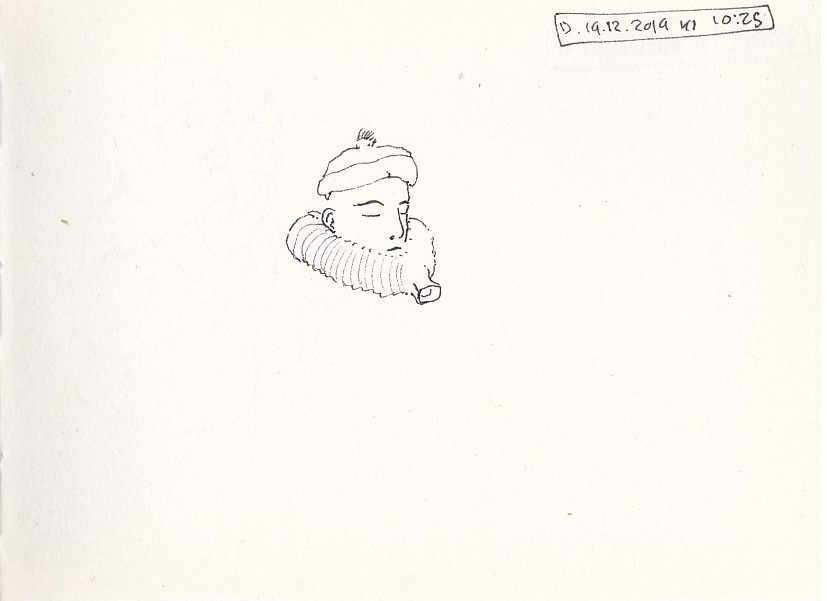 D. 19.12.2019 kl 10:25